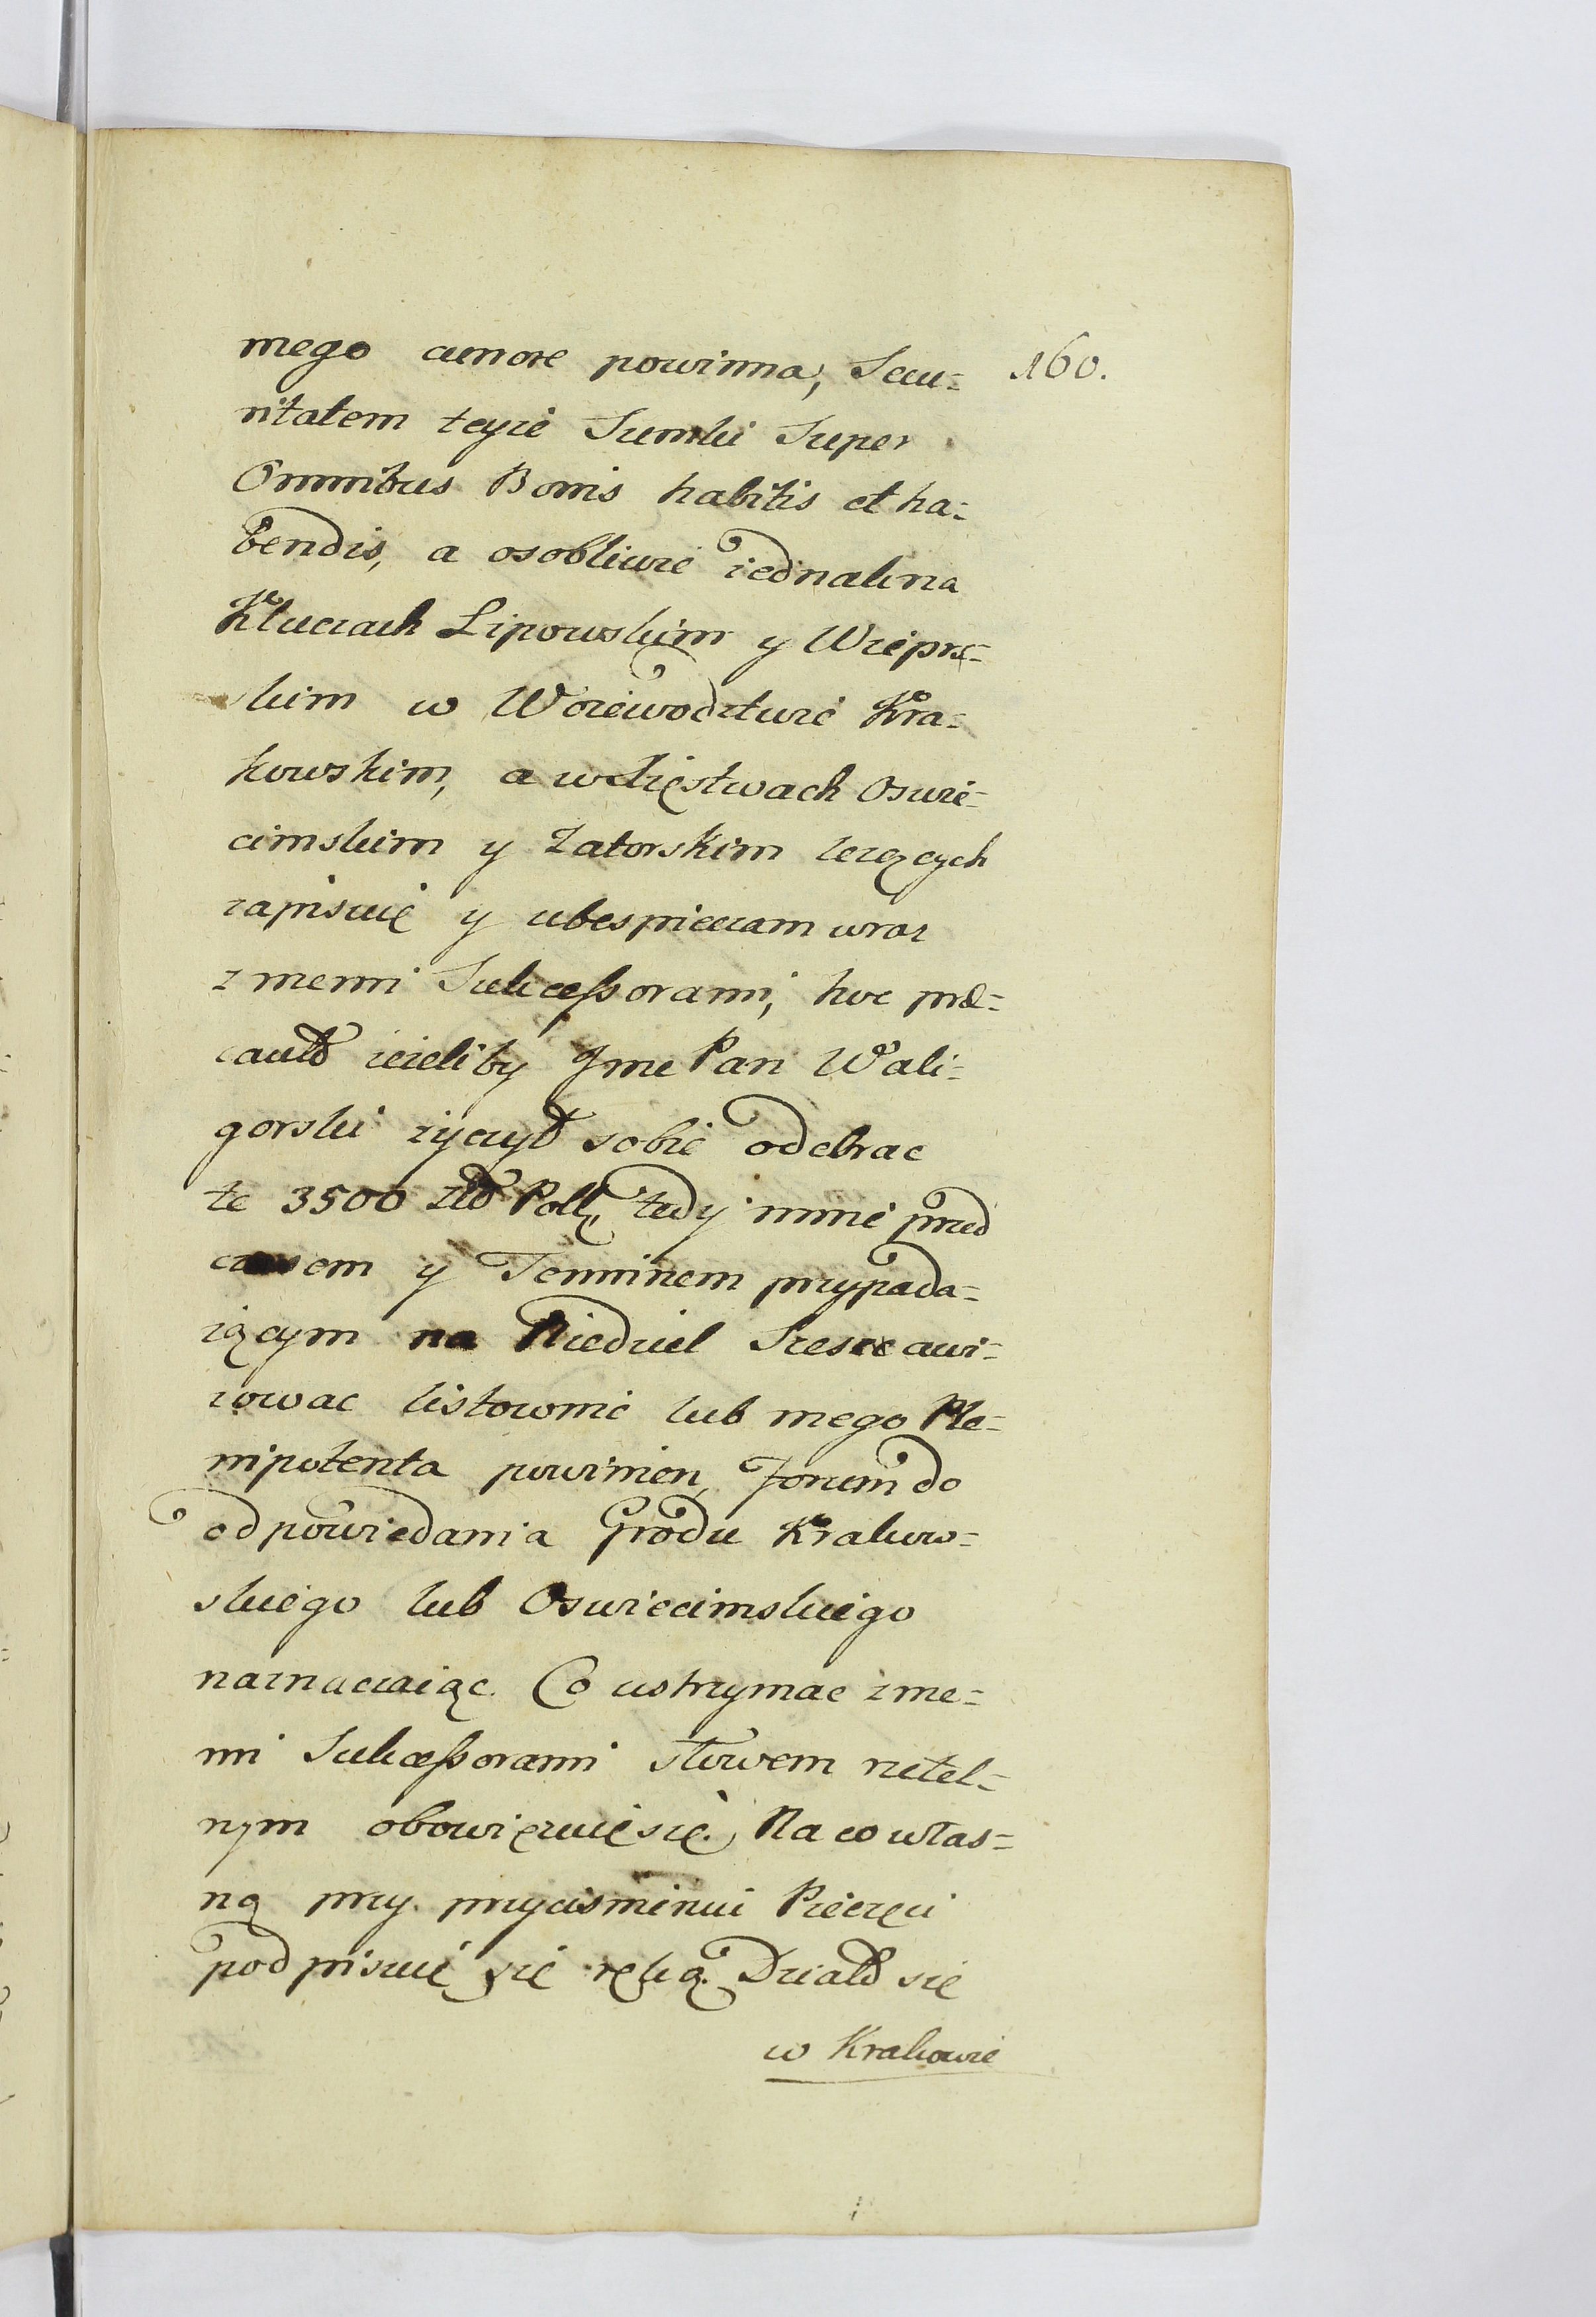 mego amore powinna, Secu= 160.
ritatem teyze Sumki Super
Omnibus Bonis habitis et ha=
bendis, a osobliwie iednak na
Kluczach Lipowskim y Wieprs=
skim w Woiewodztwie Kra=
kowskim, a w Xięstwach Oswie=
cimskim y Zatorskim lezących
zapisuię y ubespieczam wraz
z memi Sukceßorami, hoc præ=
cauto iezeliby Jme Pan Wali=
gorski zyczył sobie odebrac
te 3500 Zło Poll, tedy mnie przed
czasem y Terminem przypada=
iącym na Niedziel Szesc awi=
zowac listownie lub mego Ple=
nipotenta powinien, Forum do
odpowiedania Grodu Krakow=
skiego lub Oswiecimskiego
naznaczaiąc. Co ustrzymac z me=
mi Sukceßorami słowem rzetel=
nym obowięzuię się. Na co włas=
ną przy przycisnieniu Pieczęci
podpisuię się ręką. Działo się
w Krakowie